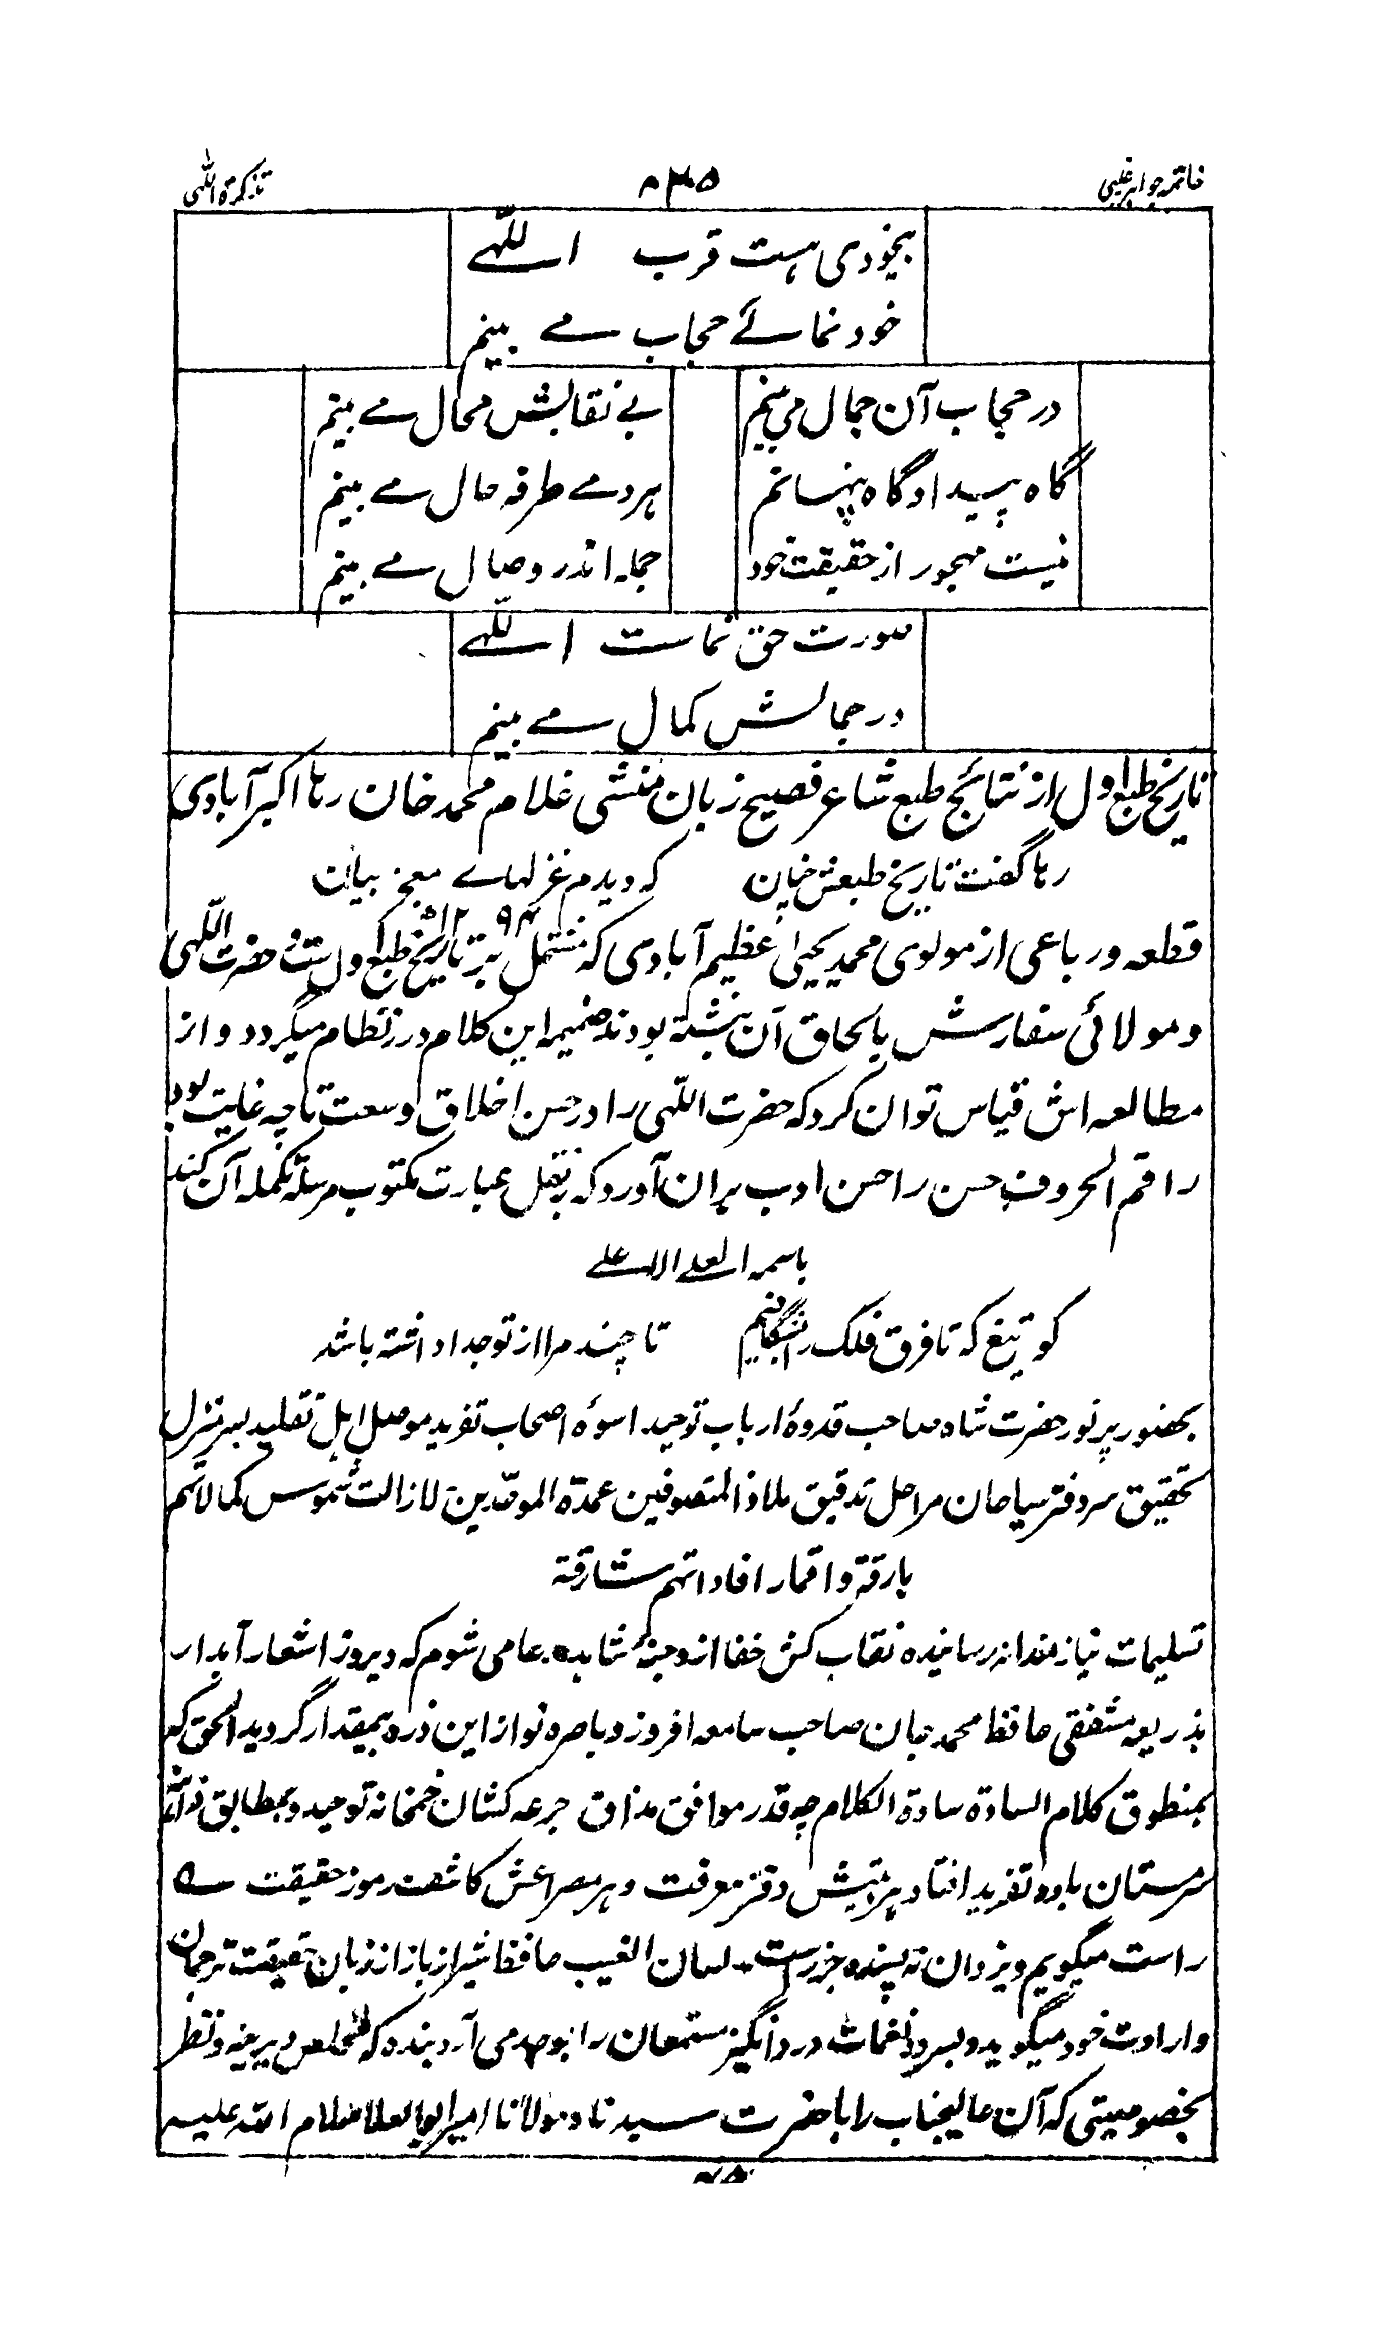 خاتمہ جواہر غیبی
۵۳۸
تذکرۃ اللّٰہی
بیخودی ہست قرب اللّٰہے
خود نمائے حجاب مے بینم
در حجاب آن جمال می بینم بے نقابش محال مے بینم
گاہ پیدا و گاہ پنہانم ہر دمے طرفہ حال مے بینم
نیست مہجور از حقیقت خود جملہ اندر وصال مے بینم
صورت حق نماست اللّٰہے
در جمالش کمال مے بینم
تاریخ طبع اول از نتائج طبع شاعر فصیح زبان منشی غلام محمد خان رہا اکبرآبادی
رہا گفت تاریخ طبعش چنان کہ دیدم غزلہاے معجز بیان
۱۲۹۴ھ
قطعہ و رباعی از مولوی محمد یحییٰ عظیم آبادی کہ مشتمل بر تاریخ طبع اول ست و حضرت اللّٰہی
و مولائی سفارش بالحاق آن بنشتہ بودند ضمیمہ این کلام درر نظام میگردد و از
مطالعہ اش قیاس توان کرد کہ حضرت اللّٰہی را در حسن اخلاق وسعت تا چہ غایت بود
راقم الحروف حسن را حسن ادب بران آورد کہ بنقل عبارت مکتوب مرسلہ تکملہ آن کند
باسمہ العلے الاعلے
کو تیغ کہ تا فرق فلک را بشگافیم تا چند مرا از تو جدا داشتہ باشد
بحضور پر نور حضرت شاہ صاحب قدوۂ ارباب توحید اسوۂ اصحاب تفرید موصل اہل تقلید بسر منزل
تحقیق سر دفتر سیاحان مراحل تدقیق ملاذ المتصوفین عمدۃ الموحدین لازالت شموس کمالاتہم
بارقۃ و اقمار افاداتہم شارقۃ
تسلیمات نیاز مندانہ رسانیدہ نقاب کش خفا از وجنۂ شاہد عامی شوم کہ دیروز اشعار آبدار
بذریعہ مشفقی حافظ محمد جان صاحب سامعہ افروز و باصرہ نواز این ذرہ بیمقدار گردید الحق کہ
بمنطوق کلام السادۃ سادۃ الکلام چہ قدر موافق مذاق جرعہ کشان خمخانہ توحید و بمطابق
سرمستان بادہ تفرید افتاد ہر بیتش دفتر معرفت و ہر مصراعش کاشف رموز حقیقت ؎
راست میگویم و یزدان نہ پسندد جز راست لسان الغیب حافظ شیراز باز از زبان حقیقت ترجمان
و ارادت خود میگوید و بسرود نغمات درد انگیز مستمعان را بوجد می آرد بندہ کہ مخلص دیرینہ و نظر
بخصوصیتی کہ آن عالیجناب را با حضرت سیدنا و مولانا امیر ابو العلا سلام اللہ علیہ